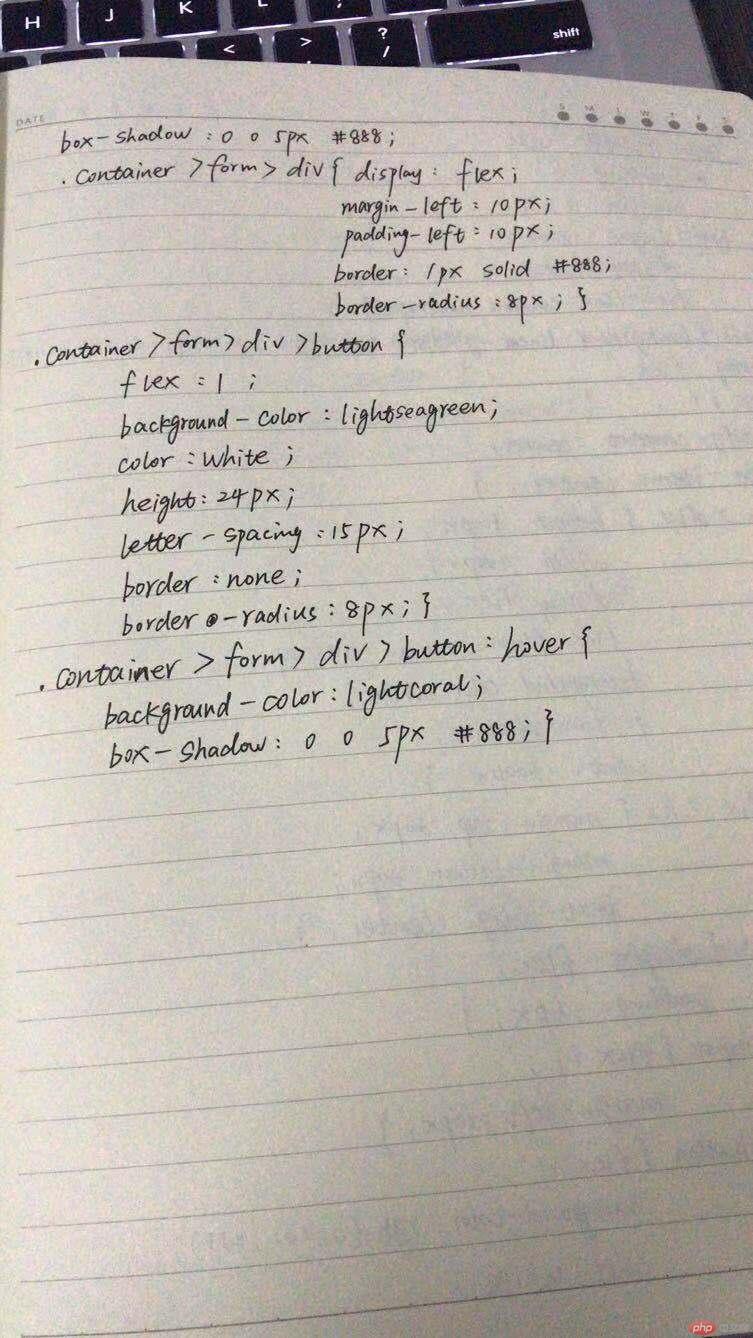 H J K L ;
< > ? /
shift
DATE S M T W T F S
box-shadow : 0 0 5px #888;
.container >form> div{ display: flex;
margin-left: 10px;
padding-left: 10px;
border: 1px solid #888;
border-radius: 8px; }
.container >form> div >button {
flex : 1 ;
background-color : lightseagreen;
color : white ;
height: 24px;
letter-spacing : 15px;
border : none;
border-radius : 8px; }
.container > form > div > button : hover {
background-color : lightcoral;
box-shadow: 0 0 5px #888; }
php